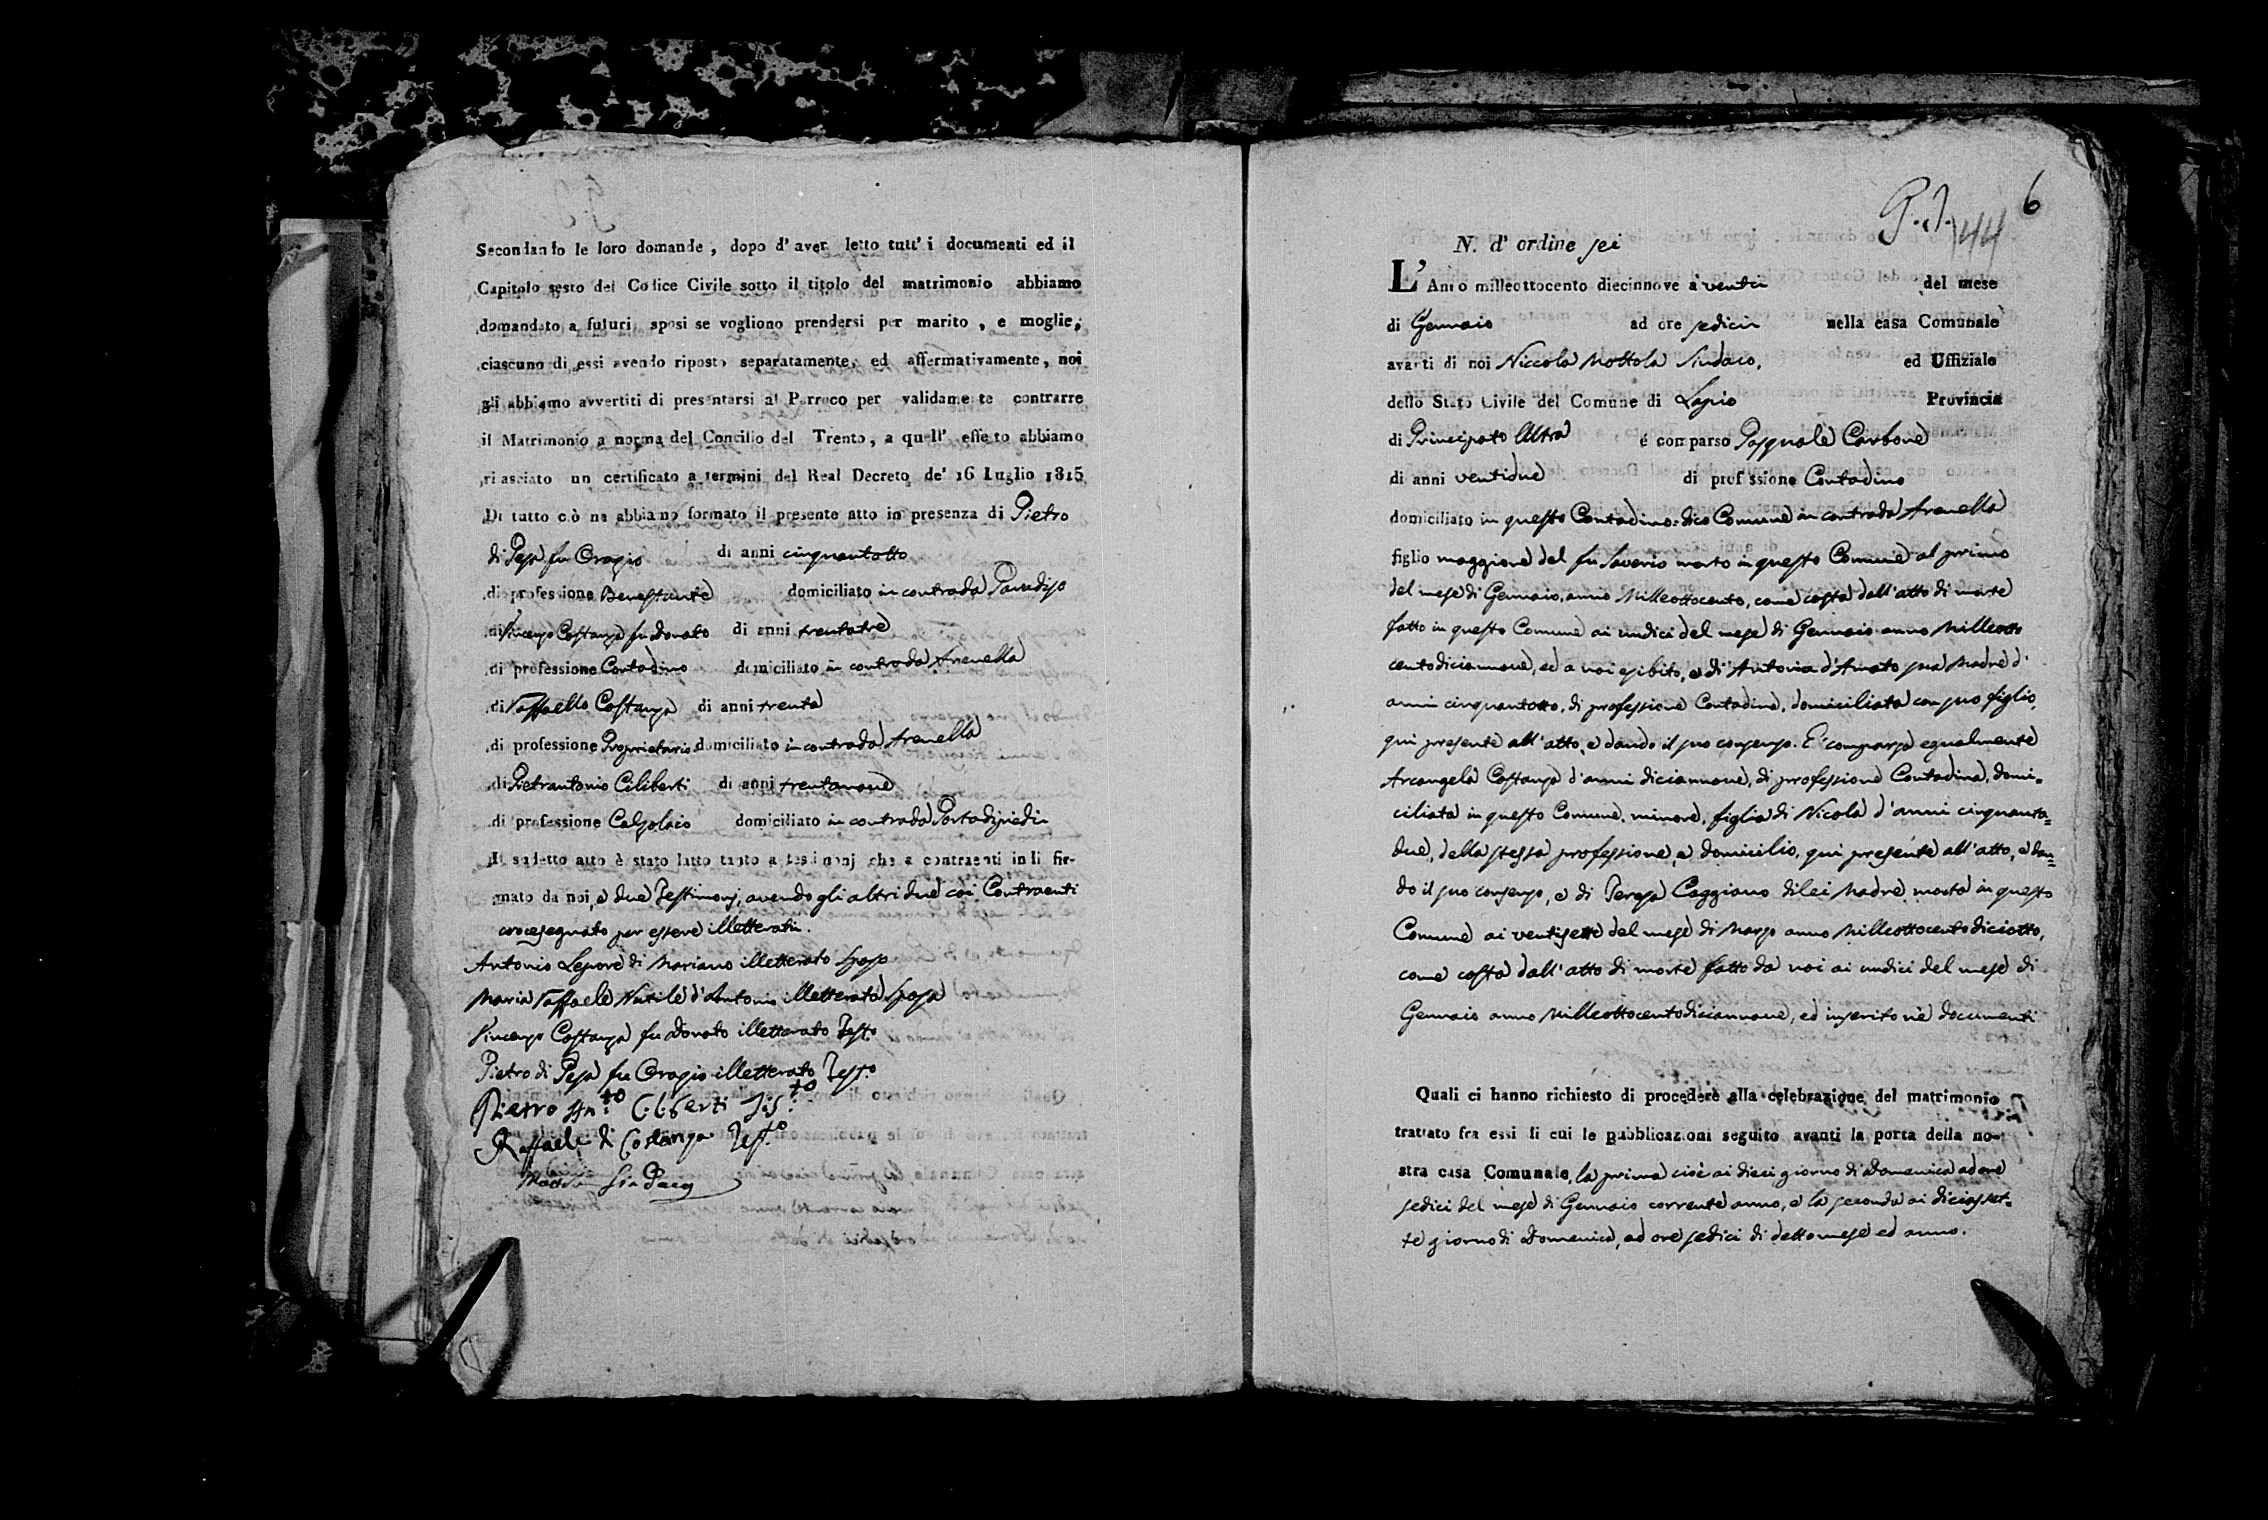 Secondando le loro domande, dopo d'aver letto tutt'i documenti ed il
Capitolo sesto del Codice Civile sotto il titolo del matrimonio abbiamo
domandato a futuri sposi se vogliono prendersi per marito, e moglie,
ciascuno di essi avendo riposto separatamente, ed affermativamente, noi
gli abbiamo avvertiti di presentarsi al Parroco per validamente contrarre
il Matrimonio a norma del Concilio del Trento, a quell'effetto abbiamo
rilasciato un certificato a termini del Real Decreto de' 16 Luglio 1815
Di tutto ciò ne abbiamo formato il presente atto in presenza di Pietro
di Pesa fu Orazio di anni cinquantotto
di professione Benestante domiciliato in contrada Paradiso
di Vincenzo Costanza fu Donato di anni trentatre
di professione Contadino domiciliato in contrada Arenella
di Raffaello Costanza di anni trenta
di professione Proprietario domiciliato in contrada Arenella
di Pietrantonio Ciliberti di anni trentanove
di professione Calzolaio domiciliato in contrada Portadipiedi
Il sudetto atto è stato letto tanto a testimonj che a contraenti indi fir-
mato da noi, e due Testimonj, avendo gli altri due coi Contraenti
crocesegnato per essere illetterati.
Antonio Lepore di Mariano illetterato Sposo
Maria Raffaele Nutile d'Antonio illetterata Sposa
Vincenzo Costanza fu Donato illetterato Test.o
Pietro di Pesa fu Orazio illetterato Test.o
Pietro An:to Ciliberti Tes:to
Raffaele di Costanza Test.o
Mottola Sindaco
G. A. 144 6
N. d'ordine sei
L'Anno milleottocento diecinnove à venti del mese
di Gennaio ad ore sedici nella casa Comunale
avanti di noi Niccola Mottola Sindaco, ed Uffiziale
dello Stato Civile del Comune di Lapio Provincia
di Principato Ultra é comparso Pasquale Carbone
di anni ventidue di professione Contadino
domiciliato in questo Contadino: dico Comune in contrada Arenella
figlio maggiore del fu Saverio morto in questo Comune al primo
del mese di Gennaio, anno Milleottocento, come costa dall'atto di morte
fatto in questo Comune ai undici del mese di Gennaio anno Milleotto
centodiciannove, ed a noi esibito, e di Antonia d'Amato sua Madre d'
anni cinquantotto, di professione Contadina, domiciliata con suo figlio,
qui presente all'atto, e dando il suo consenso. E' comparsa egualmente
Arcangela Costanza d'anni diciannove, di professione Contadina, domi=
ciliata in questo Comune, minore, figlia di Nicola d'anni cinquanta=
due, della stessa professione, e domicilio, qui presente all'atto, e dan=
do il suo consenso, e di Teresa Caggiano di lei Madre morta in questo
Comune ai ventisette del mese di Marzo anno Milleottocentodiciotto,
come costa dall'atto di morte fatto da noi ai undici del mese di
Gennaio anno Milleottocentodiciannove, ed inserito nè documenti
Quali ci hanno richiesto di procedere alla celebrazione del matrimonio
trattato fra essi di cui le pubblicazioni seguito avanti la porta della no-
stra casa Comunale, la prima cioè ai dieci giorno di Domenica ad ore
sedici del mese di Gennaio corrente anno, e la seconda ai diciasset-
te giorno di Domenica, ad ore sedici di detto mese ed anno.